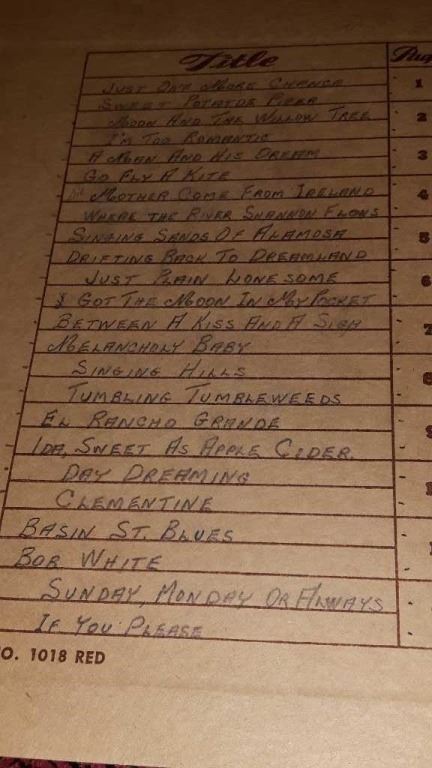 Title
JUST ONE MORE CHANCE 1
SWEET POTATOE PIPER
MOON AND THE WILLOW TREE 2
I'M TOO ROMANTIC
A MAN AND HIS DREAM 3
GO FLY A KITE
MOTHER COME FROM IRELAND 4
WHERE THE RIVER SHANNON FLOWS
SINGING SANDS OF ALAMOSA 5
DRIFTING BACK TO DREAMLAND
JUST PLAIN LONESOME 6
I GOT THE MOON IN MY POCKET
BETWEEN A KISS AND A SIGH 7
MELANCHOLY BABY
SINGING HILLS 8
TUMBLING TUMBLEWEEDS
EL RANCHO GRANDE 9
IDA, SWEET AS APPLE CIDER.
DAY DREAMING
CLEMENTINE
BASIN ST. BLUES
BOB WHITE
SUNDAY, MONDAY OR ALWAYS
IF YOU PLEASE
O. 1018 RED